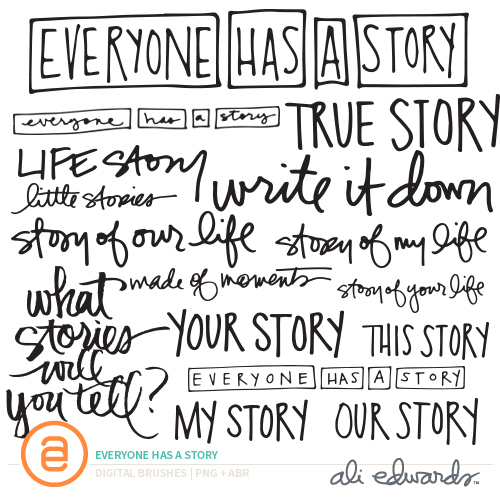 EVERYONE HAS A STORY
everyone has a story
TRUE STORY
LIFE story
write it down
little stories
story of our life
story of my life
made of moments
story of your life
what
stories
will
you tell?
YOUR STORY
THIS STORY
EVERYONE HAS A STORY
MY STORY
OUR STORY
ae
EVERYONE HAS A STORY
DIGITAL BRUSHES | PNG + ABR
ali edwards™